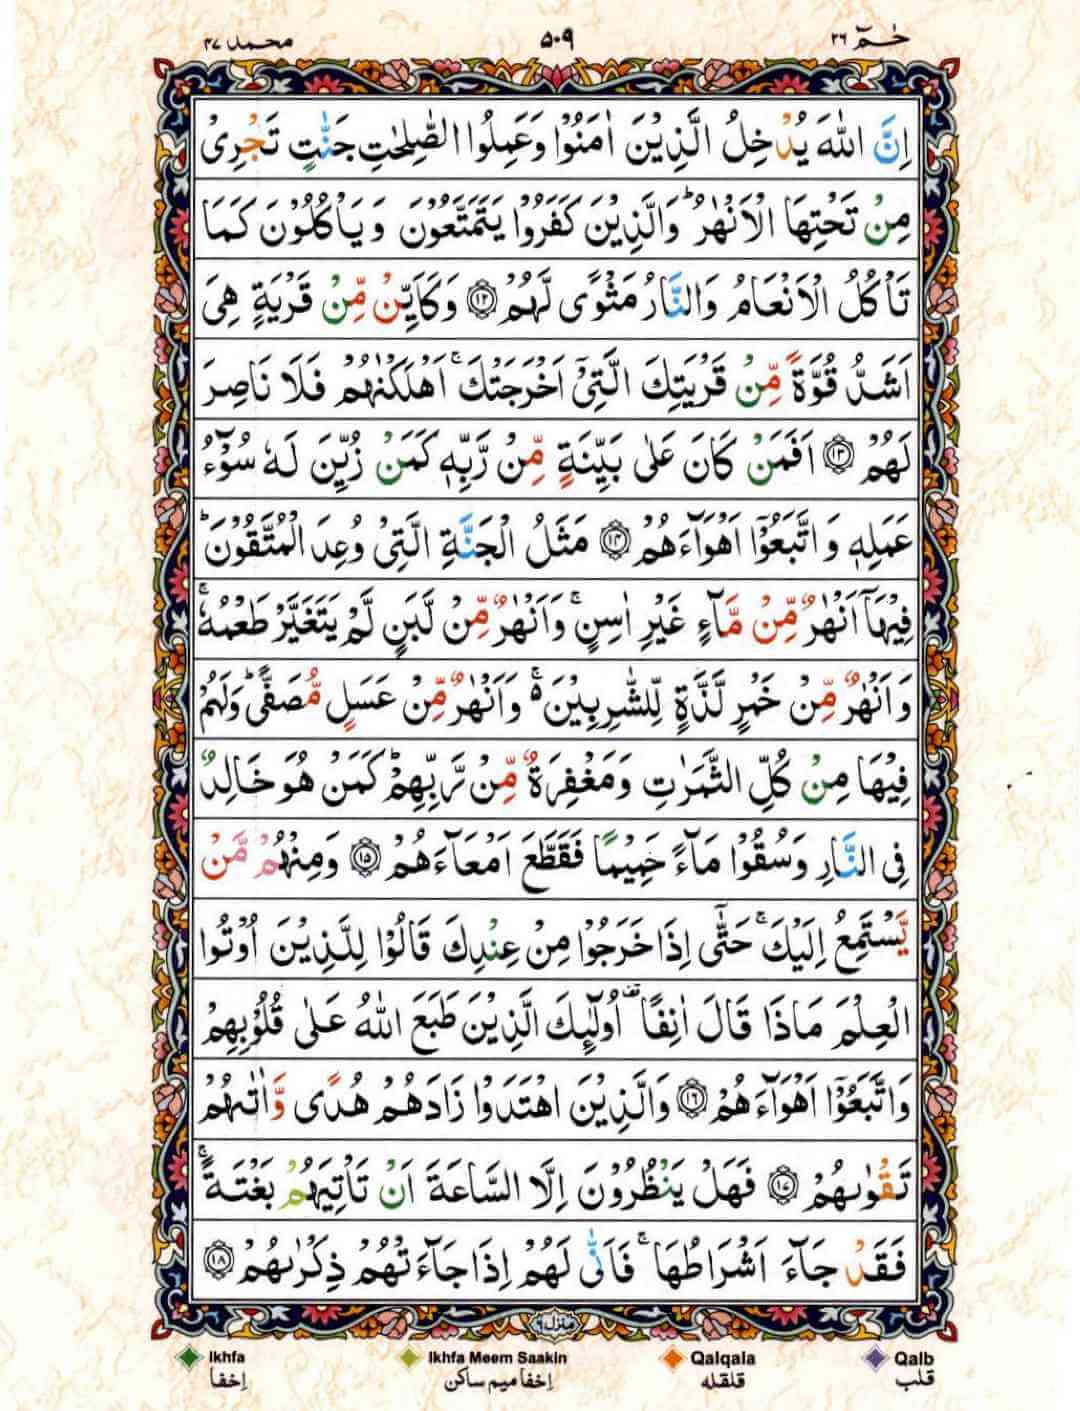 حٰمٓ ٢٦ ٥٠٩ محمد ٤٧
اِنَّ اللّٰهَ يُدْخِلُ الَّذِيْنَ اٰمَنُوْا وَعَمِلُوا الصّٰلِحٰتِ جَنّٰتٍ تَجْرِىْ
مِنْ تَحْتِهَا الْاَنْهٰرُ ؕ وَالَّذِيْنَ كَفَرُوْا يَتَمَتَّعُوْنَ وَيَاْكُلُوْنَ كَمَا
تَاْكُلُ الْاَنْعَامُ وَالنَّارُ مَثْوًى لَّهُمْ ۝١٢ وَكَاَيِّنْ مِّنْ قَرْيَةٍ هِىَ
اَشَدُّ قُوَّةً مِّنْ قَرْيَتِكَ الَّتِىْٓ اَخْرَجَتْكَ ۚ اَهْلَكْنٰهُمْ فَلَا نَاصِرَ
لَهُمْ ۝١٣ اَفَمَنْ كَانَ عَلٰى بَيِّنَةٍ مِّنْ رَّبِّهٖ كَمَنْ زُيِّنَ لَهٗ سُوْٓءُ
عَمَلِهٖ وَاتَّبَعُوْٓا اَهْوَآءَهُمْ ۝١٤ مَثَلُ الْجَنَّةِ الَّتِىْ وُعِدَ الْمُتَّقُوْنَ ؕ
فِيْهَاۤ اَنْهٰرٌ مِّنْ مَّآءٍ غَيْرِ اٰسِنٍ ۚ وَاَنْهٰرٌ مِّنْ لَّبَنٍ لَّمْ يَتَغَيَّرْ طَعْمُهٗ ۚ
وَاَنْهٰرٌ مِّنْ خَمْرٍ لَّذَّةٍ لِّلشّٰرِبِيْنَ ۚ۬ وَاَنْهٰرٌ مِّنْ عَسَلٍ مُّصَفًّى ؕ وَلَهُمْ
فِيْهَا مِنْ كُلِّ الثَّمَرٰتِ وَمَغْفِرَةٌ مِّنْ رَّبِّهِمْ ؕ كَمَنْ هُوَ خَالِدٌ
فِى النَّارِ وَسُقُوْا مَآءً حَمِيْمًا فَقَطَّعَ اَمْعَآءَهُمْ ۝١٥ وَمِنْهُمْ مَّنْ
يَّسْتَمِعُ اِلَيْكَ ۚ حَتّٰٓى اِذَا خَرَجُوْا مِنْ عِنْدِكَ قَالُوْا لِلَّذِيْنَ اُوْتُوا
الْعِلْمَ مَاذَا قَالَ اٰنِفًا ۫ اُولٰٓئِكَ الَّذِيْنَ طَبَعَ اللّٰهُ عَلٰى قُلُوْبِهِمْ
وَاتَّبَعُوْٓا اَهْوَآءَهُمْ ۝١٦ وَالَّذِيْنَ اهْتَدَوْا زَادَهُمْ هُدًى وَّاٰتٰىهُمْ
تَقْوٰىهُمْ ۝١٧ فَهَلْ يَنْظُرُوْنَ اِلَّا السَّاعَةَ اَنْ تَاْتِيَهُمْ بَغْتَةً ۚ
فَقَدْ جَآءَ اَشْرَاطُهَا ۚ فَاَنّٰى لَهُمْ اِذَا جَآءَتْهُمْ ذِكْرٰىهُمْ ۝١٨
منزل ٦
Ikhfa Ikhfa Meem Saakin Qalqala Qalb
إخفا إخفا میم ساکن قلقله قلب